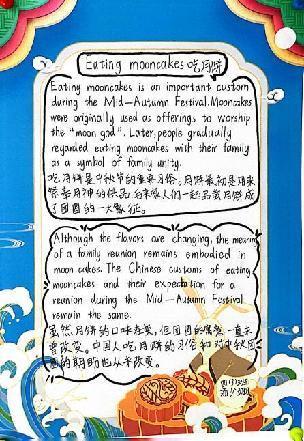 Eating mooncakes 吃月饼
Eating mooncakes is an important custom
during the Mid-Autumn Festival. Mooncakes
were originally used as offerings to worship
the "moon god". Later, people gradually
regarded eating mooncakes with their family
as a symbol of family unity.
吃月饼是中秋节的重要习俗，月饼最初是用来
祭奉月神的供品，后来人们一起品尝月饼成
了团圆的一大象征。
Although the flavors are changing, the meaning
of a family reunion remains embodied in
moon cakes. The Chinese customs of eating
mooncakes and their expectation for a
reunion during the Mid-Autumn Festival
remain the same.
虽然月饼的口味在变，但团圆的寓意一直不
变。中国人吃月饼的习俗和对中秋团
圆的期盼也从未改变。